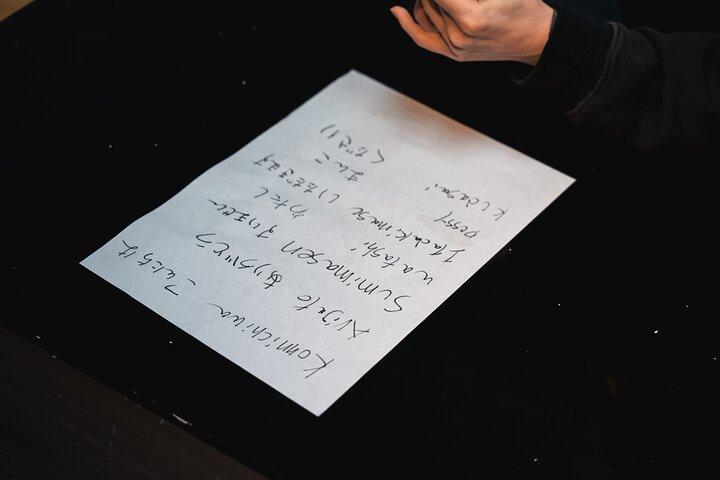 Konnichiwa こんにちは
Arigato ありがとう
Sumimasen すいません
watashi わたし
Itadakimasu いただきます
pussy まんこ
kudasai ください